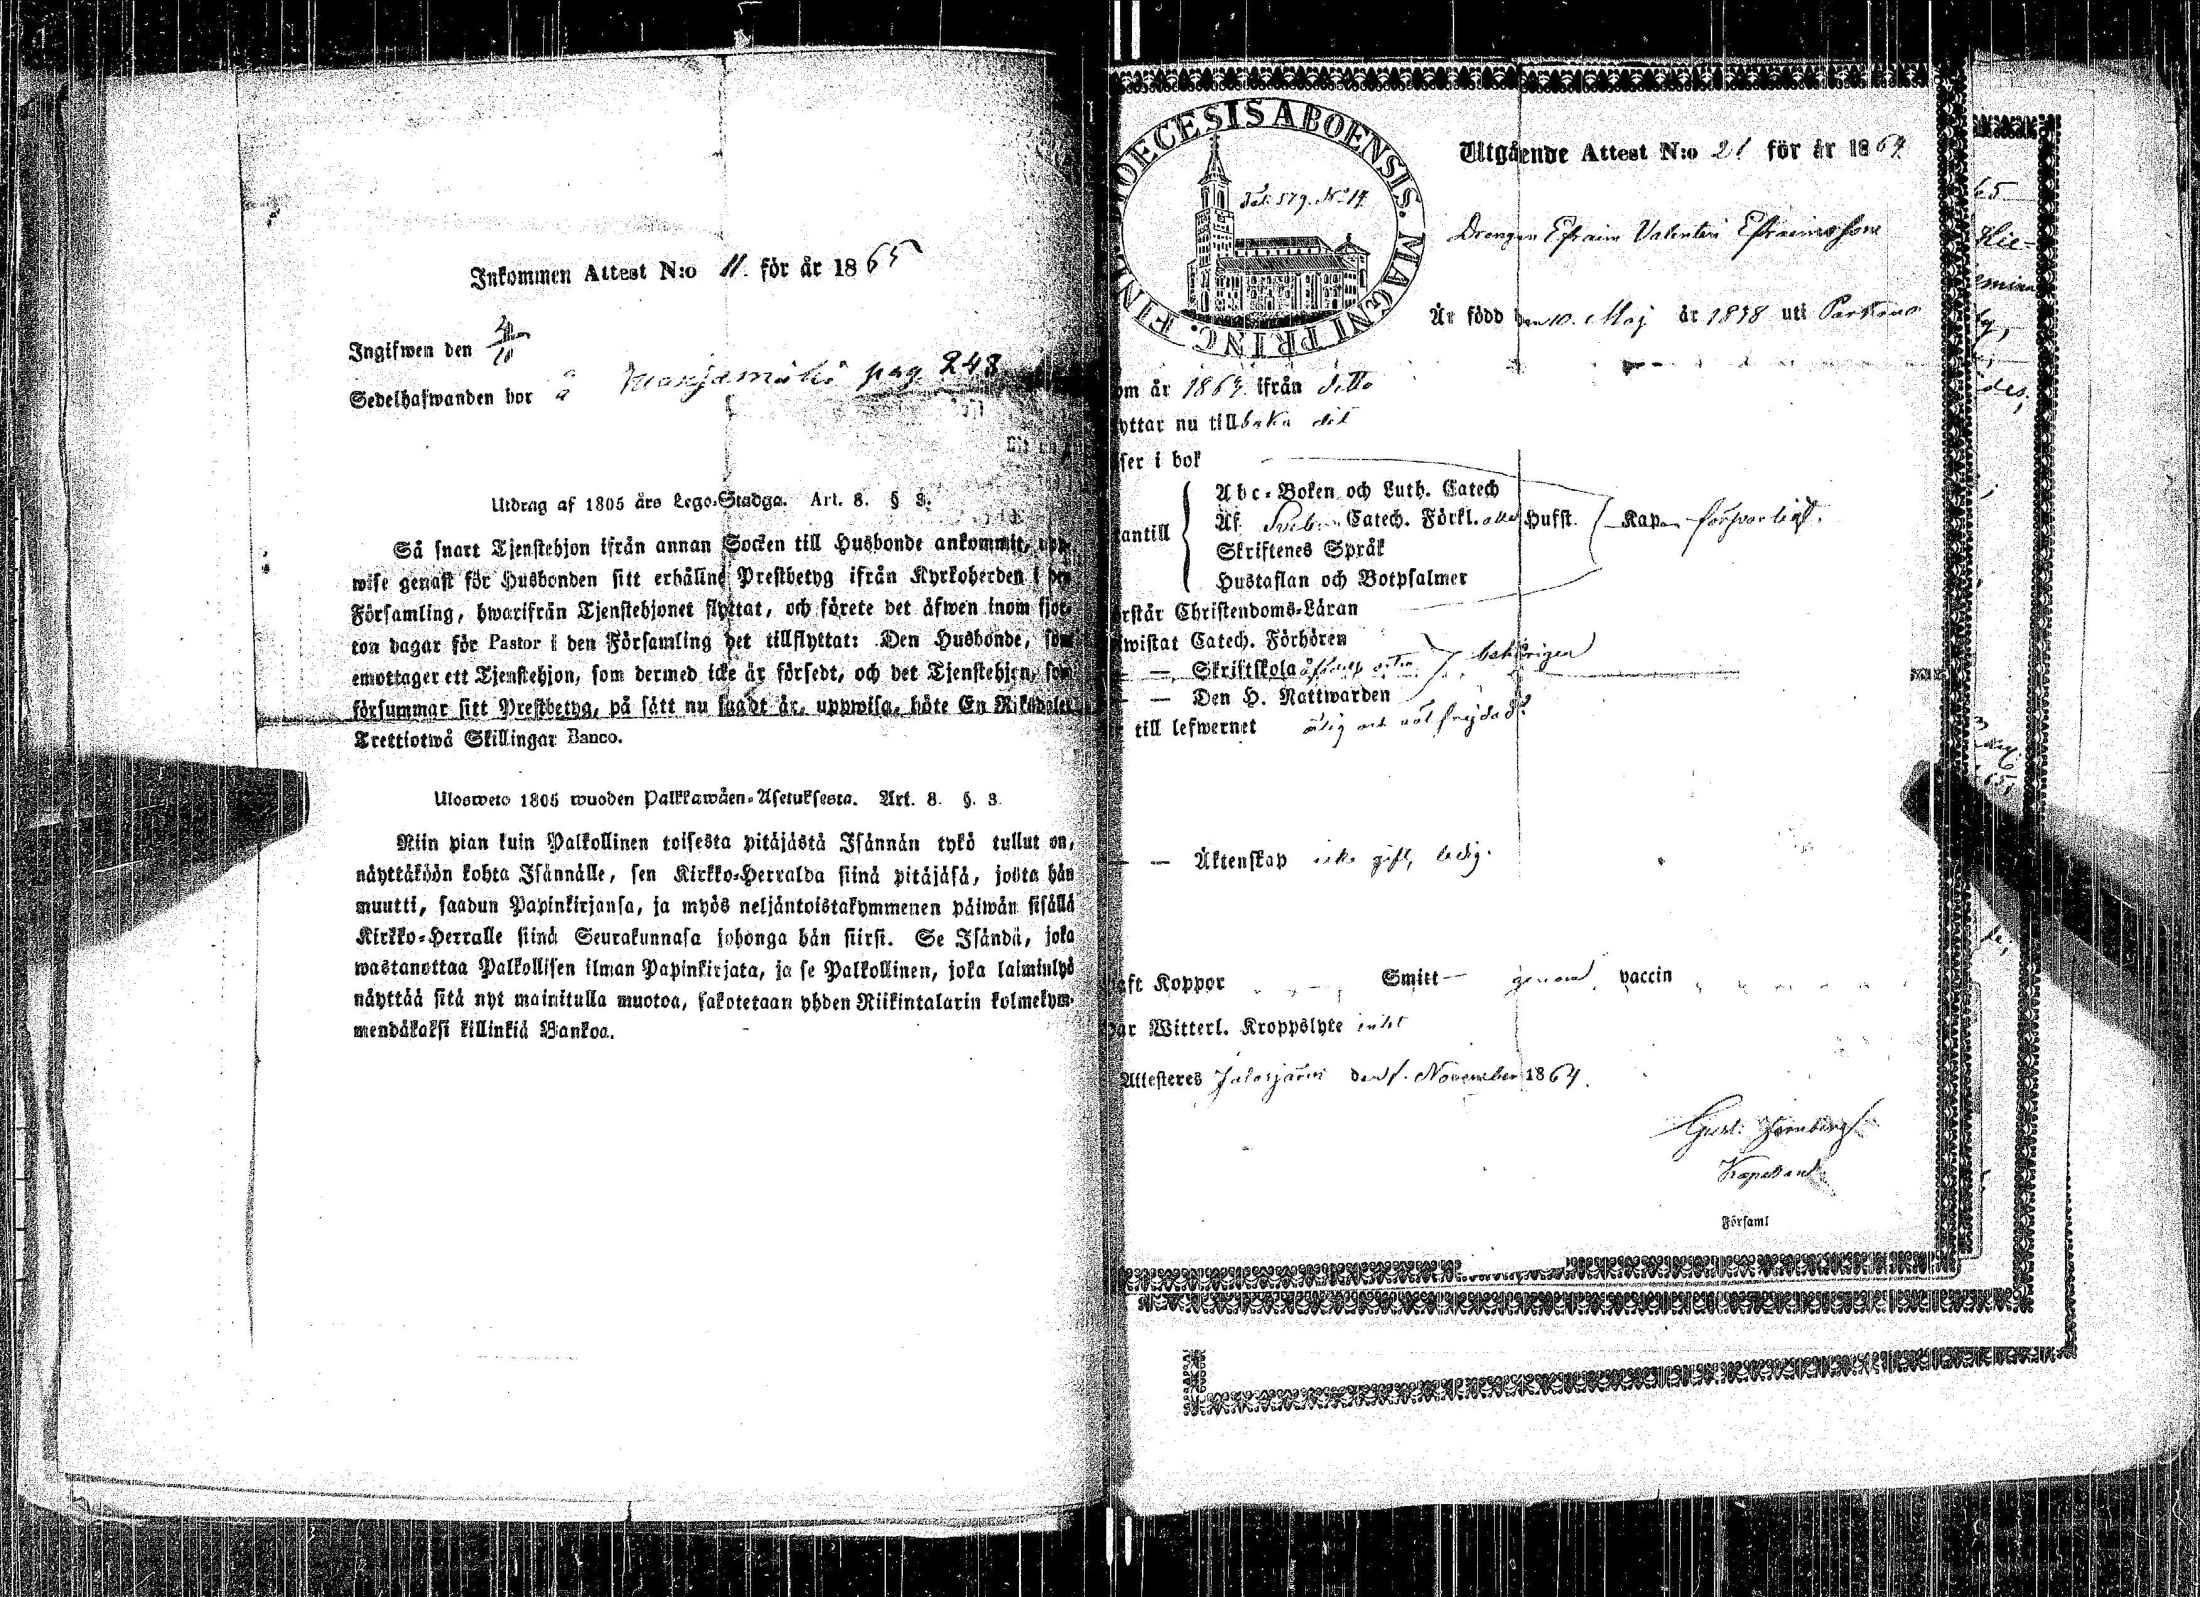 Inkommen Attest N:o 11. för år 1865
Ingifwen den
Sedelhafwanden bor å Marjamäki pag. 243
Utdrag af 1805 års Lego-Stadga. Art. 8. § 3.
Så snart Tjenstehjon ifrån annan Socken till Husbonde ankommit, upp-
wise genast för Husbonden sitt erhållne Prestbetyg ifrån Kyrkoherden i den
Församling, hwarifrån Tjenstehjonet flyttat, och förete det äfwen inom fjor-
ton dagar för Pastor i den Församling det tillflyttat: Den Husbonde, som
emottager ett Tjenstehjon, som dermed icke är försedt, och det Tjenstehjon, som
försummar sitt Prestbetyg, på sätt nu sagdt är, uppwisa, böte En Riksdaler
Trettiotwå Skillingar Banco.
Ulosweto 1805 wuoden Palkkawäen-Asetuksesta. Art. 8. §. 3.
Niin pian kuin Palkollinen toisesta pitäjästä Isännän tykö tullut on,
näyttäköön kohta Isännälle, sen Kirkko-Herralda siinä pitäjäsä, josta hän
muutti, saadun Papinkirjansa, ja myös neljäntoistakymmenen päiwän sisällä
Kirkko-Herralle siinä Seurakunnasa johonga hän siirsi. Se Isändä, joka
wastanottaa Palkollisen ilman Papinkirjata, ja se Palkollinen, joka laiminlyö
näyttää sitä nyt mainitulla muotoa, sakotetaan yhden Riikintalarin kolmekym-
mendäkaksi killinkiä Bankoa.
DIOECESIS ABOENSIS. MAGNI PRINC. FINL.
Fol: 579. No 14
Utgående Attest N:o 21 för år 1864
Drengen Efraim Valentin Efraimsson
Är född den 10. Maj år 1848 uti Parkano
om år 1864 ifrån ditto
yttar nu tillbaka dit
ser i bok
Abc-Boken och Luth. Catech
Af Sveb. Catech. Förkl. alla Hufst. Kap. försvarligt.
antill
Skriftenes Språk
Hustaflan och Botpsalmer
rstår Christendoms-Läran
wistat Catech. Förhören
— — Skriftskola behörigen
— — Den H. Nattwarden
till lefwernet ärlig och väl frejdad.
— — Äktenskap icke gift, ledig.
aft Koppor Smitt — genom vaccin
ar Witterl. Kroppslyte intet
Attesteres Jalasjärvi den 1. November 1864.
Kapellan
Församl